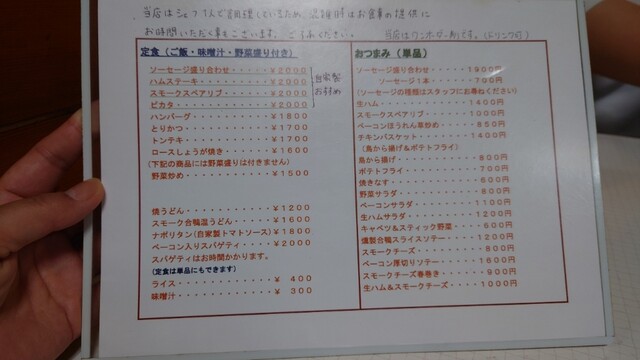 当店はシェフ1人で調理しているため、混雑時はお食事の提供に
お時間いただく事もございます。ご了承ください。 当店はワンオーダー制です。(ドリンク可)
定食(ご飯・味噌汁・野菜盛り付き)
ソーセージ盛り合わせ・・・・・¥2000
ハムステーキ・・・・・・・・・¥2000
スモークスペアリブ・・・・・・¥2000
ピカタ・・・・・・・・・・・・¥2000
自家製
おすすめ
ハンバーグ・・・・・・・・・・¥1800
とりかつ・・・・・・・・・・・¥1700
トンテキ・・・・・・・・・・・¥1700
ロースしょうが焼き・・・・・・¥1600
(下記の商品には野菜盛りは付きません)
野菜炒め・・・・・・・・・・・¥1500
焼うどん・・・・・・・・・・・¥1200
スモーク合鴨温うどん・・・・・¥1600
ナポリタン(自家製トマトソース)¥1800
ベーコン入りスパゲティ・・・・¥2000
スパゲティはお時間かかります。
(定食は単品にもできます)
ライス・・・・・・・・・・・・¥ 400
味噌汁・・・・・・・・・・・・¥ 300
おつまみ(単品)
ソーセージ盛り合わせ・・・・・1900円
ソーセージ1本・・・・・・・700円
(ソーセージの種類はスタッフにお尋ねください)
生ハム・・・・・・・・・・・・1400円
スモークスペアリブ・・・・・・1000円
ベーコンほうれん草炒め・・・・850円
チキンバスケット・・・・・・・1400円
(鳥から揚げ&ポテトフライ)
鳥から揚げ・・・・・・・・・・800円
ポテトフライ・・・・・・・・・700円
焼きなす・・・・・・・・・・・600円
野菜サラダ・・・・・・・・・・800円
ベーコンサラダ・・・・・・・・1100円
生ハムサラダ・・・・・・・・・1200円
キャベツ&スティック野菜・・・600円
燻製合鴨スライスソテー・・・・1200円
スモークチーズ・・・・・・・・800円
ベーコン厚切りソテー・・・・・1600円
スモークチーズ春巻き・・・・・900円
生ハム&スモークチーズ・・・・1000円